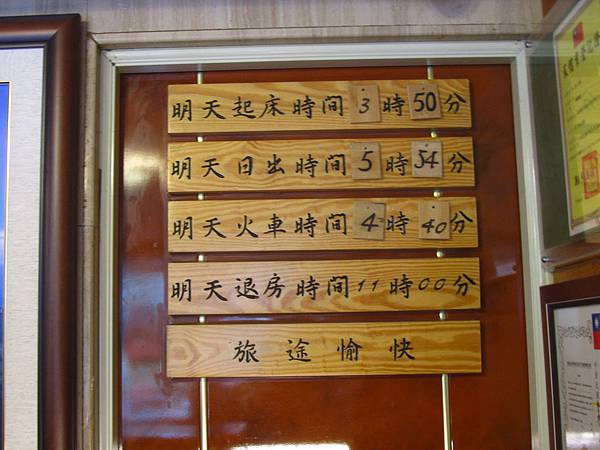 明天起床時間3時50分
明天日出時間5時54分
明天火車時間4時40分
明天退房時間11時00分
旅途愉快